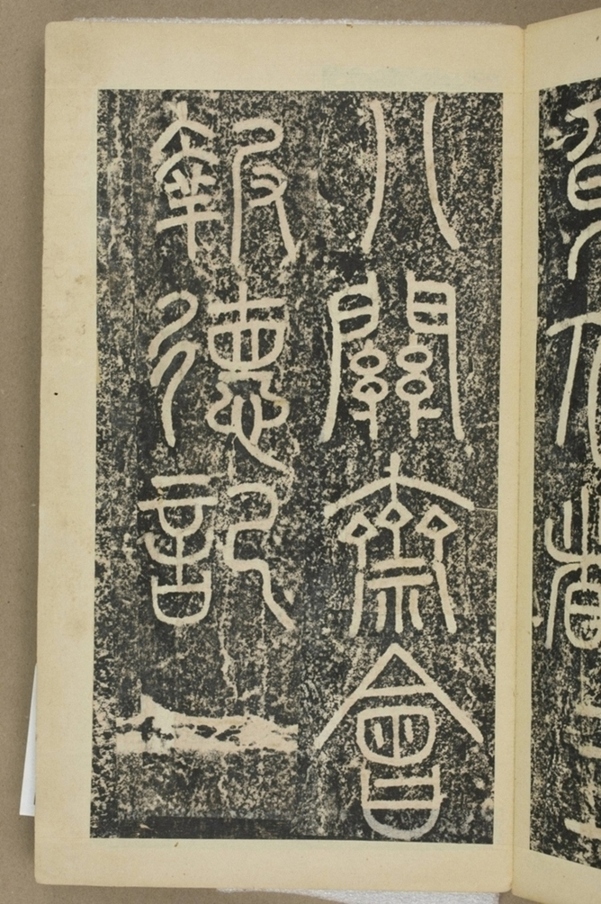 八關齋會
報德記